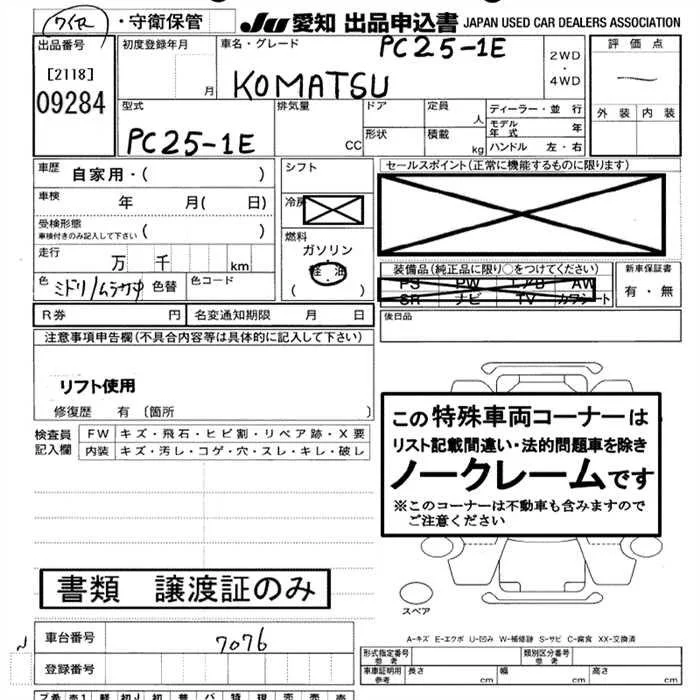 ワイヤ ・守衛保管
JU 愛知 出品申込書 JAPAN USED CAR DEALERS ASSOCIATION
出品番号
[2118]
09284
初度登録年月
月
車名・グレード
PC25-1E
KOMATSU
2WD
・
4WD
評価点
外装 内装
型式
PC25-1E
排気量
CC
ドア
形状
定員
人
積載
kg
ディーラー・並 行
モデル年式 年
ハンドル 左・右
車歴
自家用・( )
車検 年 月( 日)
受検形態
車検付きのみ記入して下さい ( )
走行 万 千 km
色 ミドリ/ムラサキ 色替
色コード
シフト
冷房
燃料
ガソリン
軽・油
( )
セールスポイント(正常に機能するものに限ります)
装備品(純正品に限り○をつけてください)
PS PW エアB AW
SR ナビ TV カワシート
新車保証書
有・無
R券 円
名変通知期限 月 日
後日品
注意事項申告欄(不具合内容等は具体的に記入して下さい)
リフト使用
修復歴 有 〔箇所 〕
検査員
記入欄
FW キズ・飛石・ヒビ割・リペア跡・X要
内装 キズ・汚し・コゲ・穴・スレ・キレ・破し
この特殊車両コーナーは
リスト記載間違い・法的問題車を除き
ノークレームです
※このコーナーは不動車も含みますので
ご注意ください
書類 譲渡証のみ
スペア
A-キズ E-エクボ U-凹み W-補修跡 S-サビ C-腐食 XX-交換済
車台番号 7076
登録番号
形式指定番号
参考
類別区分番号
参考
車車証明用
参考
長さ 幅 高さ
cm cm cm